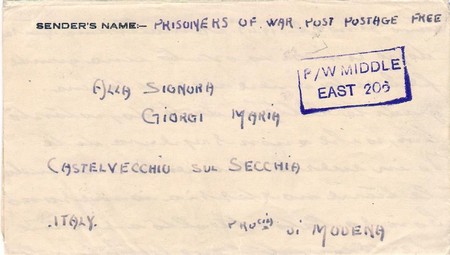 SENDER'S NAME:— PRISONERS OF WAR. POST POSTAGE FREE
P/W MIDDLE
EAST 206
ALLA SIGNORA
GIORGI MARIA
CASTELVECCHIO SUL SECCHIA
.ITALY. PROcia di MODENA